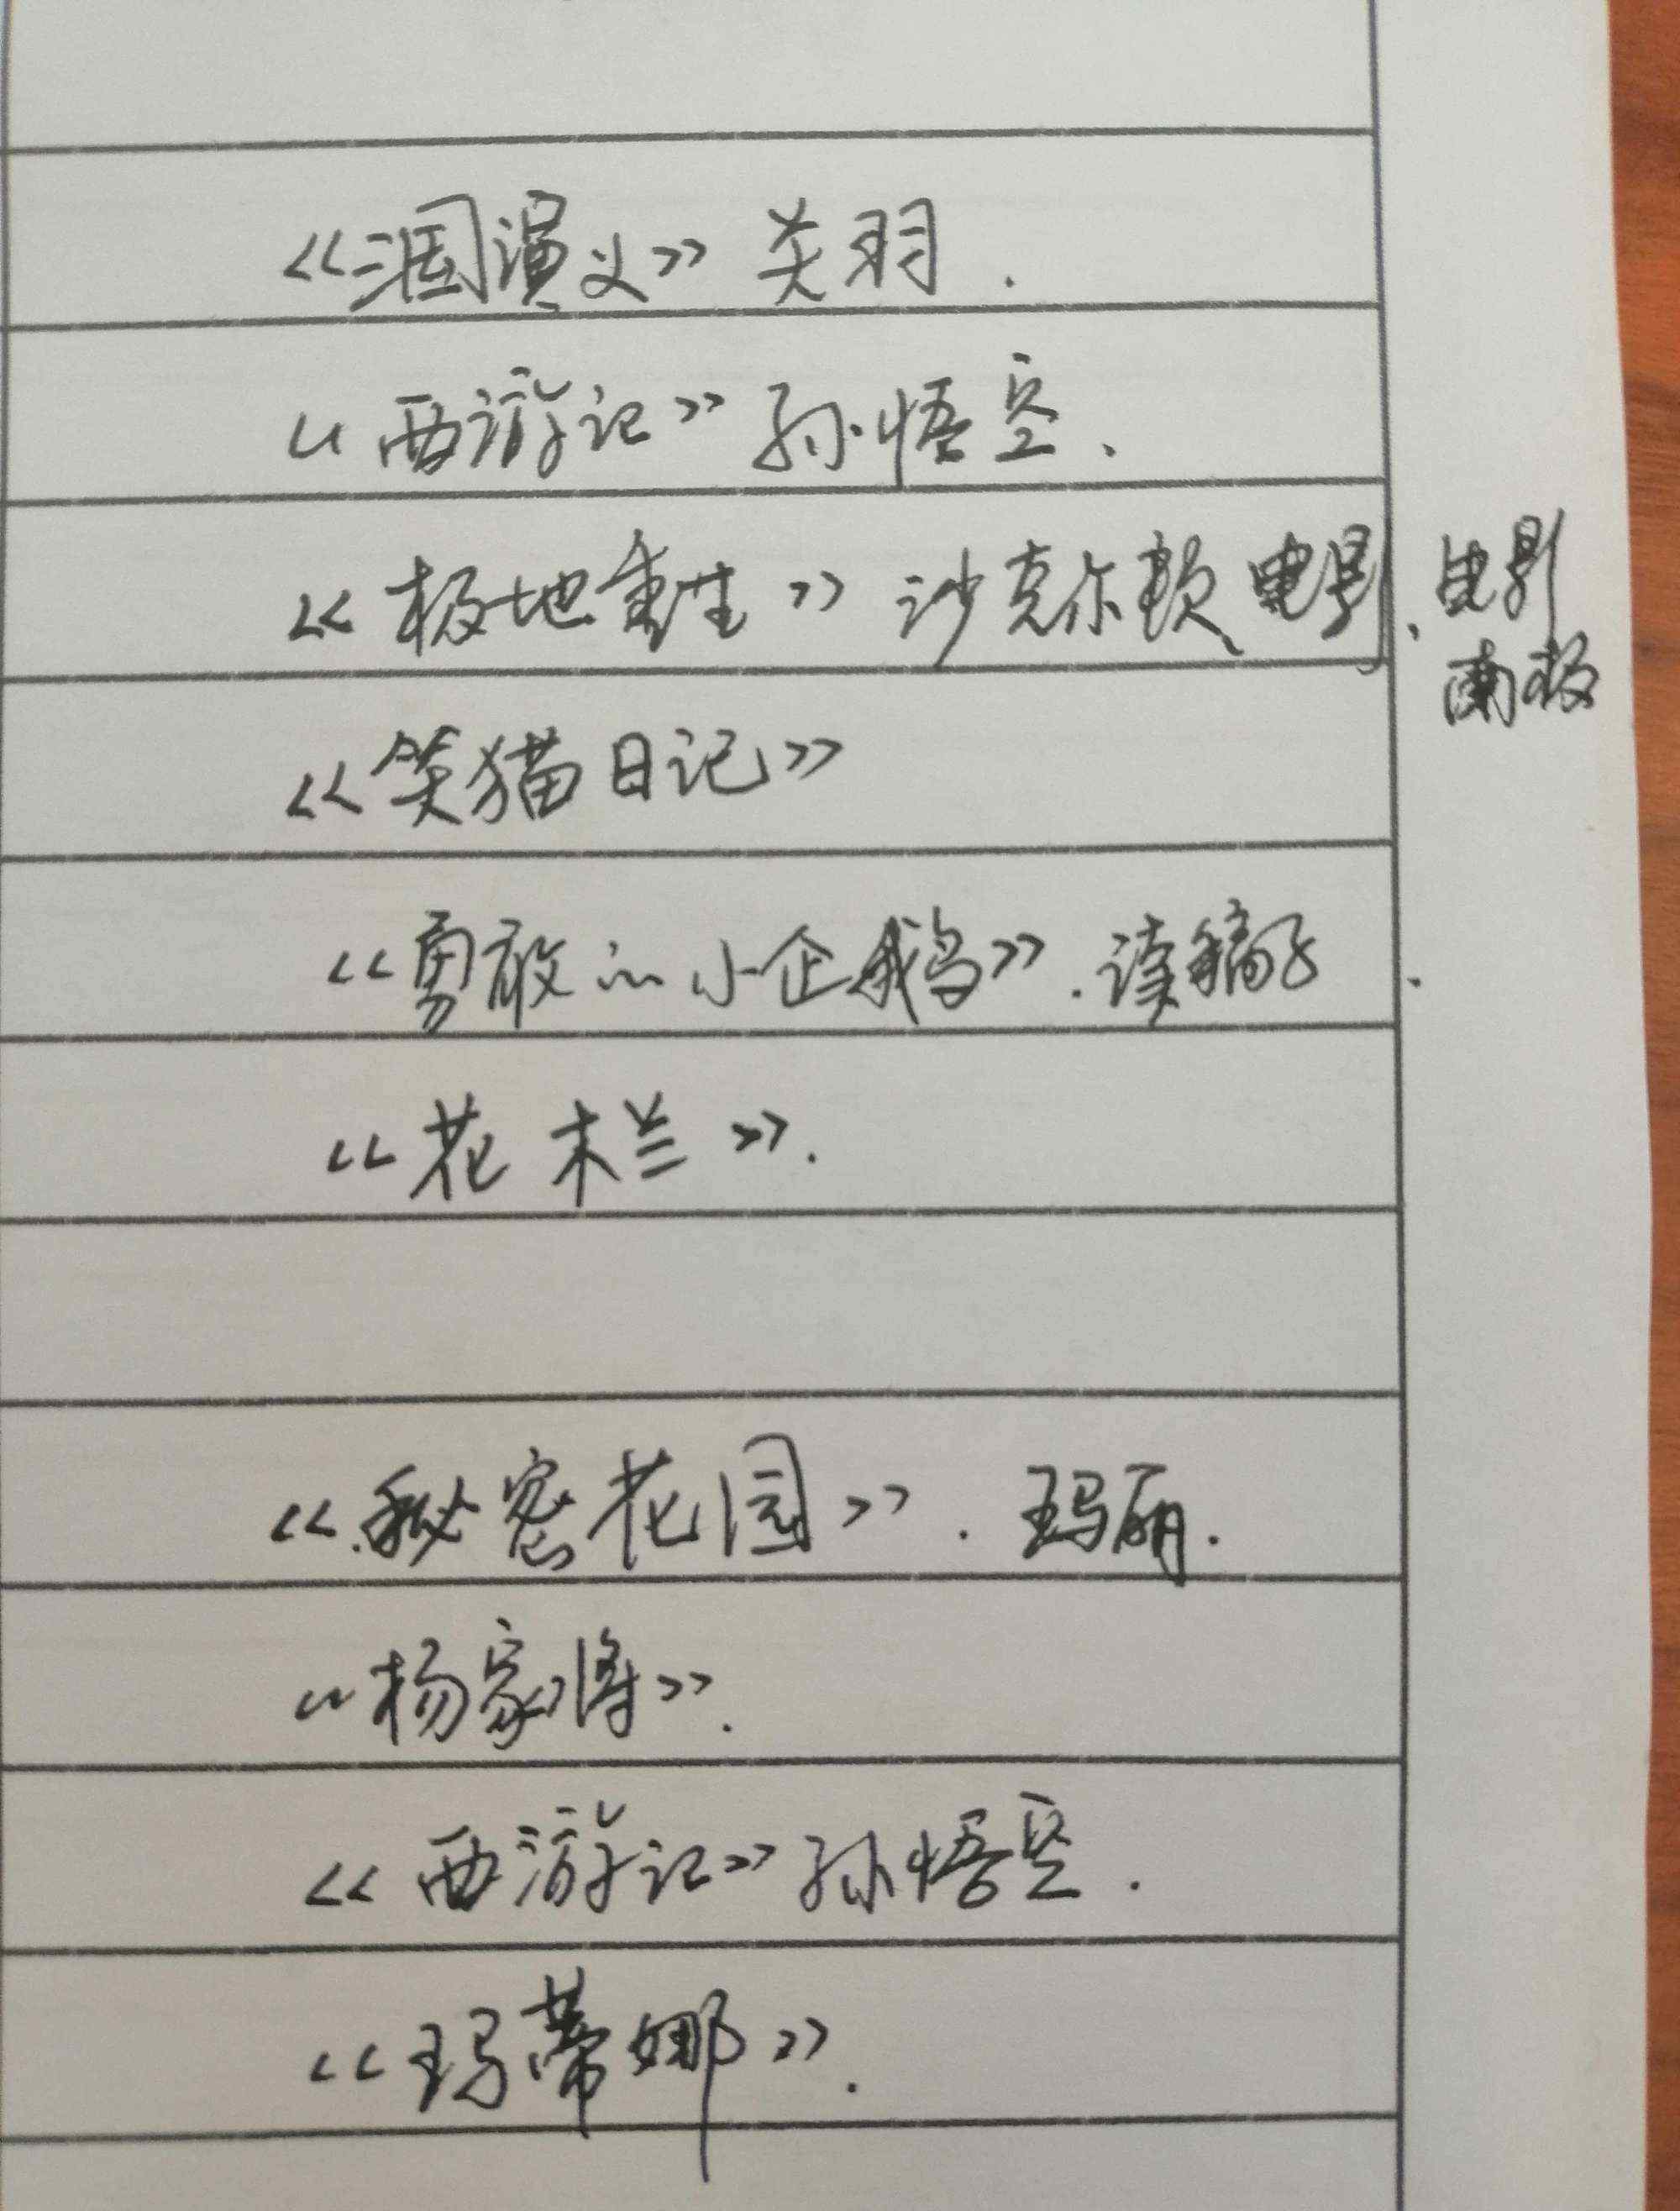 《三国演义》关羽.
《西游记》孙悟空、
《极地重生》沙克尔顿、电影、电影
南极
《笑猫日记》
《勇敢的小企鹅》.读稿子.
《花木兰》.
《秘密花园》.玛丽.
《杨家将》.
《西游记》孙悟空.
《玛蒂娜》.